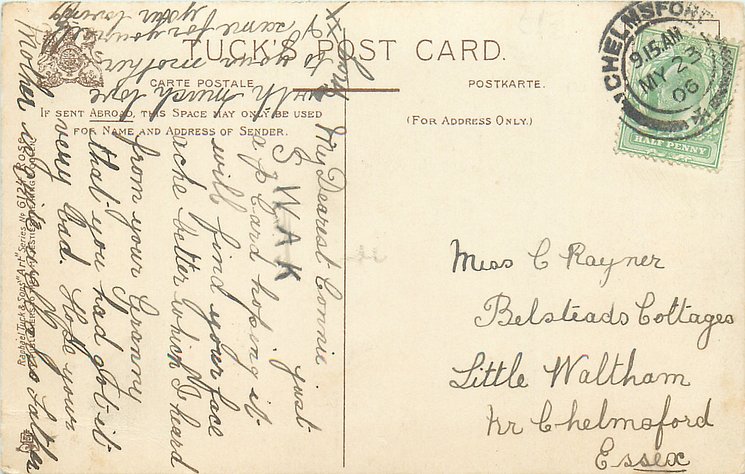 TUCK'S POST CARD.
CARTE POSTALE
POSTKARTE.
IF SENT ABROAD, THIS SPACE MAY ONLY BE USED
FOR NAME AND ADDRESS OF SENDER.
(FOR ADDRESS ONLY.)
CHELMSFORD
9.15 AM
MY 23
06
HALF PENNY
Miss C Rayner
Belsteads Cottages
Little Waltham
Nr Chelmsford
Essex
My Dearest Connie
just
SWAK
a p card hoping it
will find your face
ache better which I heard
from your Granny
that you had got it
very bad. Hope your
Mother is
with much love
to your mother
same for yourself
your loving
Raphael Tuck & Sons' "Art" Series No